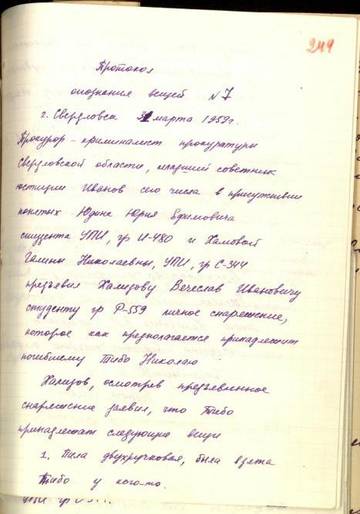 249
Протокол
опознания вещей №7
г. Свердловск 31 марта 1959г.
Прокурор-криминалист прокуратуры
Свердловской области, младший советник
юстиции Иванов сего числа в присутствии
понятых Юдина Юрия Ефимовича
студента УПИ, гр И-480 и
Галины Николаевны, УПИ, гр С-344
предъявил Хализову Вечеслав Ивановичу
студенту гр Р-559 личное снаряжение,
которое как предполагается принадлежит
погибшему Тибо Николаю
Хализов, осмотрев предъявленное
снаряжение заявил, что Тибо
принадлежат следующие вещи
1. Пила двухручковая, была взята
Тибо у кого-то.